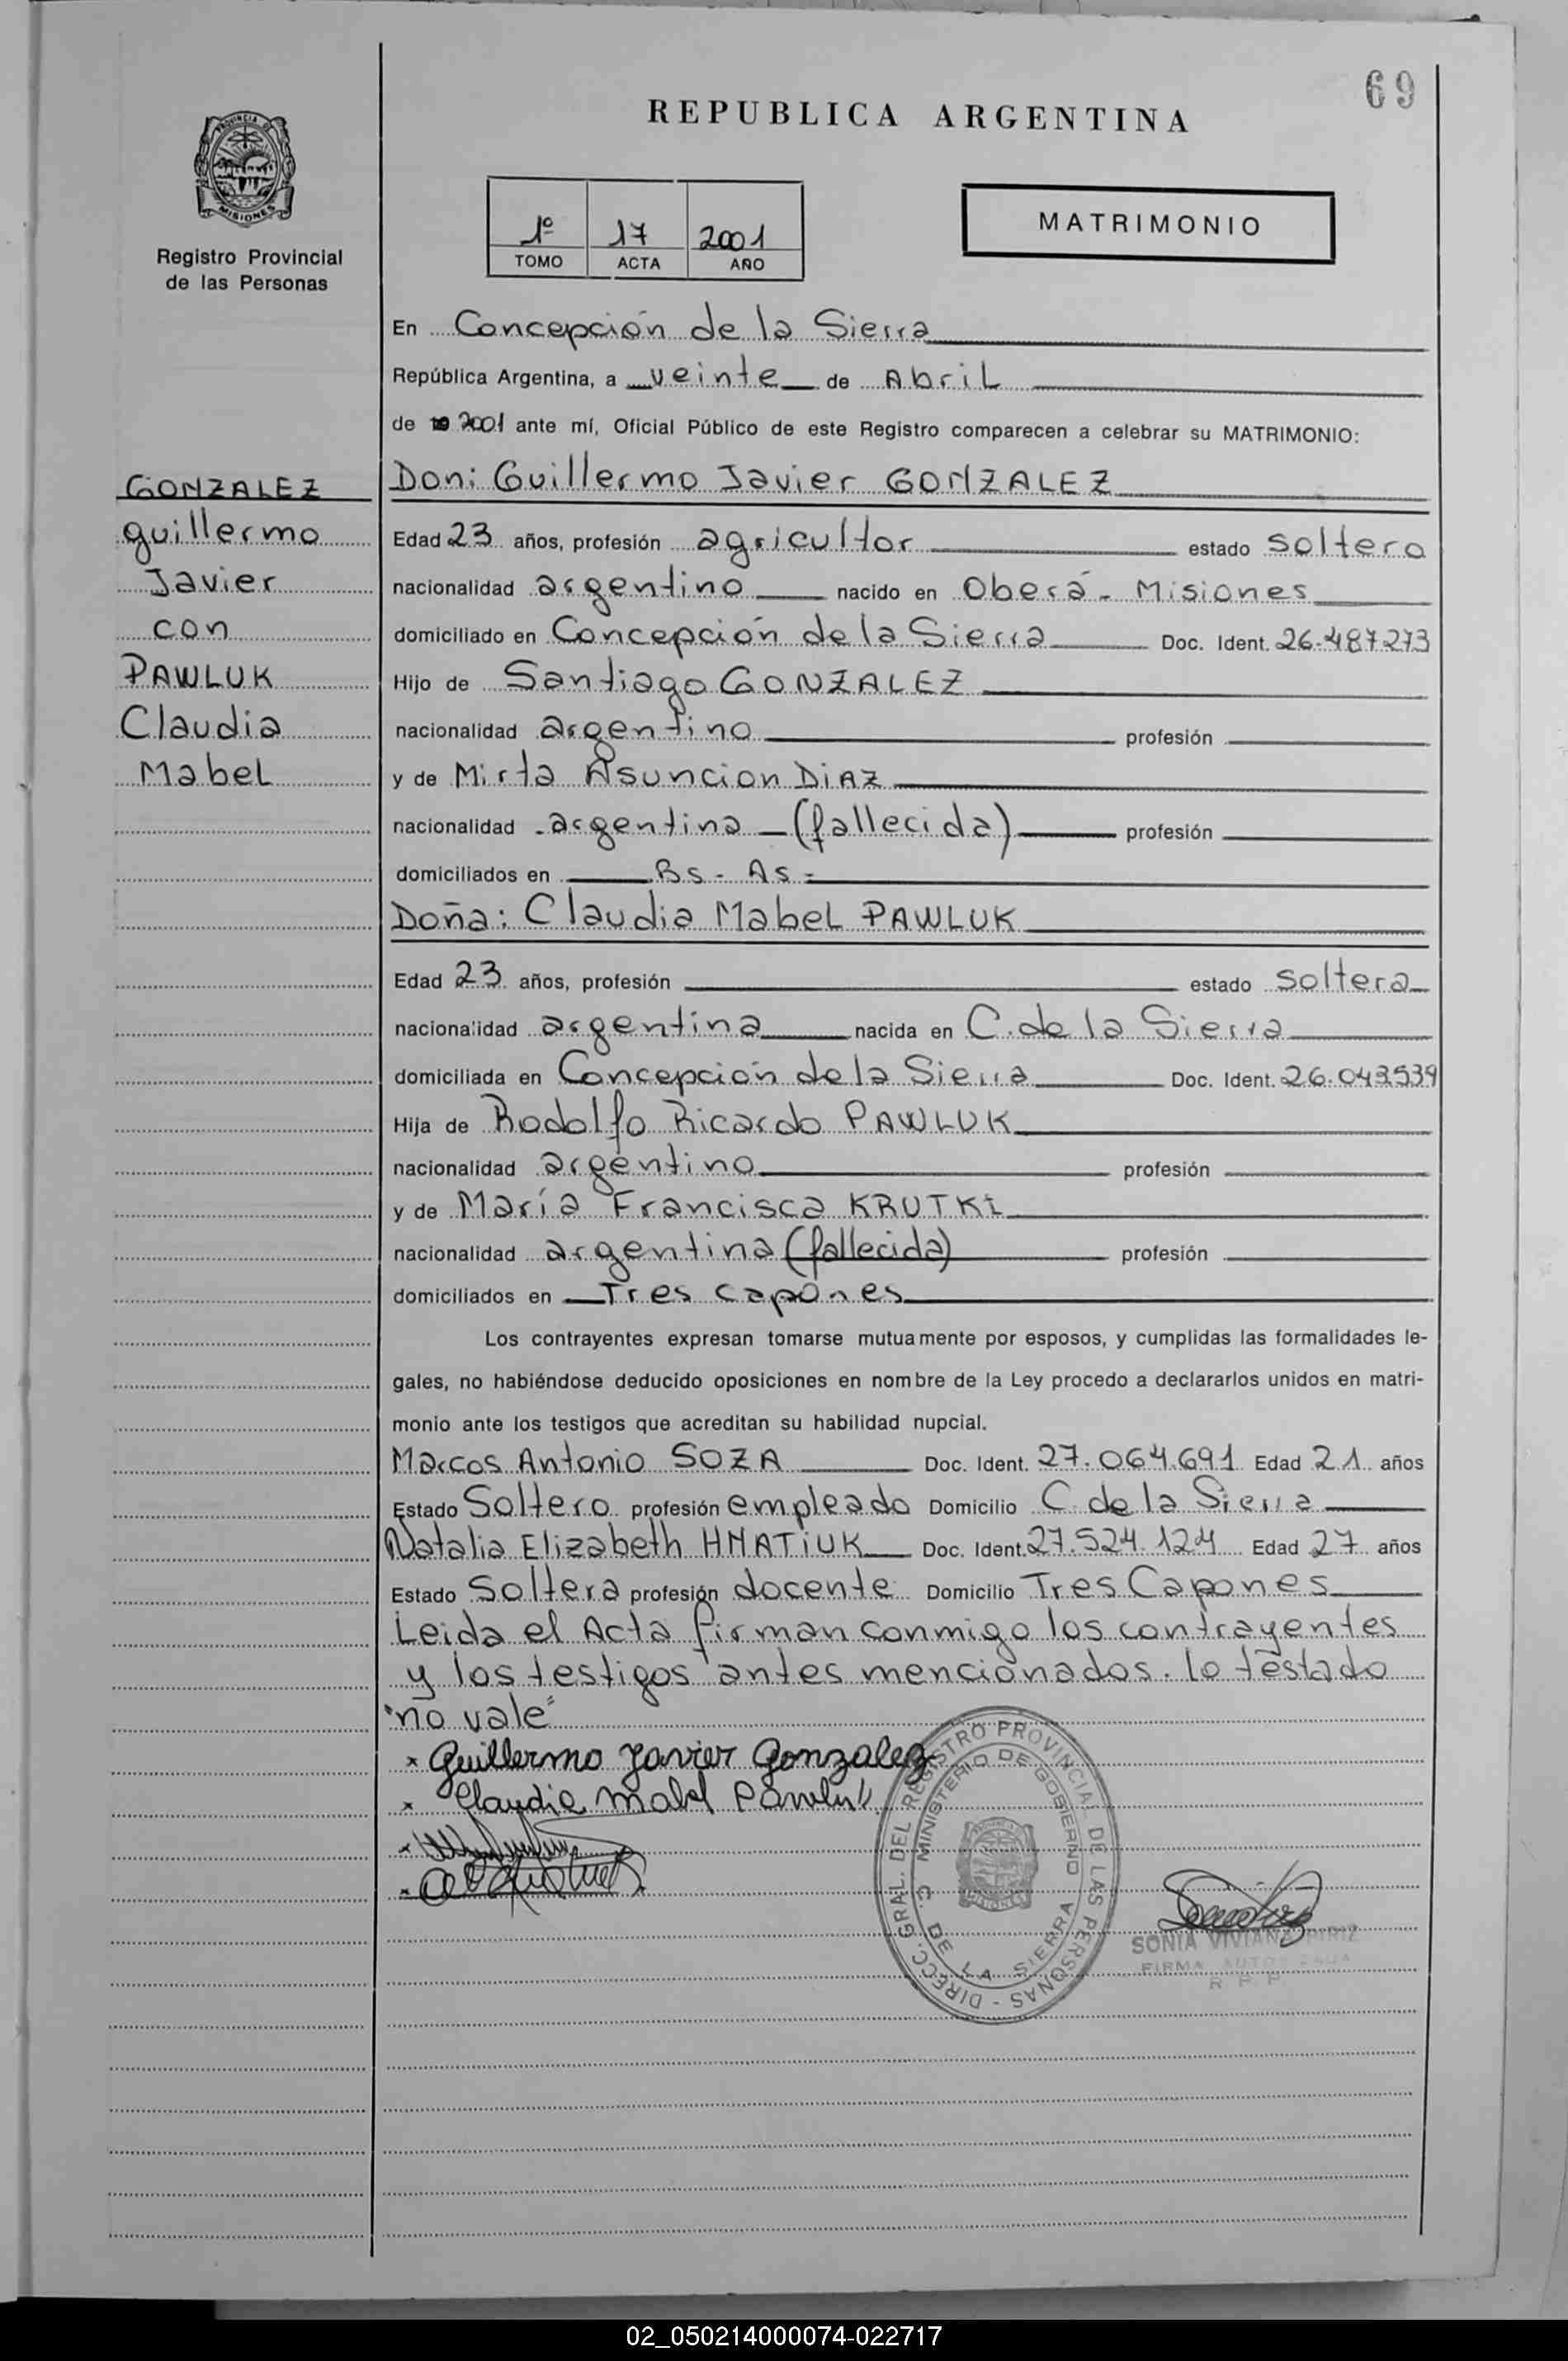 69
REPUBLICA ARGENTINA
PROVINCIA DE
MISIONES
Registro Provincial
de las Personas
1º 17 2001
TOMO ACTA AÑO
MATRIMONIO
En Concepción de la Sierra
República Argentina, a veinte de Abril
de 2001 ante mí, Oficial Público de este Registro comparecen a celebrar su MATRIMONIO:
GONZALEZ
Guillermo
Javier
con
PAWLUK
Claudia
Mabel
Don: Guillermo Javier GONZALEZ
Edad 23 años, profesión agricultor estado soltero
nacionalidad argentino nacido en Oberá - Misiones
domiciliado en Concepción de la Sierra Doc. Ident. 26.487273
Hijo de Santiago GONZALEZ
nacionalidad argentino profesión
y de Mirta Asuncion DIAZ
nacionalidad argentina (fallecida) profesión
domiciliados en Bs - As -
Doña: Claudia Mabel PAWLUK
Edad 23 años, profesión estado soltera
nacionalidad argentina nacida en C. de la Sierra
domiciliada en Concepción de la Sierra Doc. Ident.
Hija de Rodolfo Ricardo PAWLUK
nacionalidad argentino profesión
y de María Francisca KRUTKI
nacionalidad argentina (fallecida) profesión
domiciliados en Tres capones
Los contrayentes expresan tomarse mutuamente por esposos, y cumplidas las formalidades le-
gales, no habiéndose deducido oposiciones en nombre de la Ley procedo a declararlos unidos en matri-
monio ante los testigos que acreditan su habilidad nupcial.
Marcos Antonio SOZA Doc. Ident. 27.064.691 Edad 21 años
Estado Soltero profesión empleado Domicilio C. de la Sierra
Natalia Elizabeth HNATIUK Doc. Ident. 27.524.124 Edad 27 años
Estado Soltera profesión docente Domicilio Tres Capones
Leida el Acta firman conmigo los contrayentes
y los testigos antes mencionados. lo testado
"no vale"
x Guillermo Javier Gonzalez
x Claudia Mabel Pawluk
DIRECC. GRAL. DEL REGISTRO PROVINCIAL DE LAS PERSONAS -
MINISTERIO DE GOBIERNO
C. DE LA SIERRA
SONIA VIVIANA PIRIZ
FIRMA AUTORIZADA
R. P. P.
02_050214000074-022717